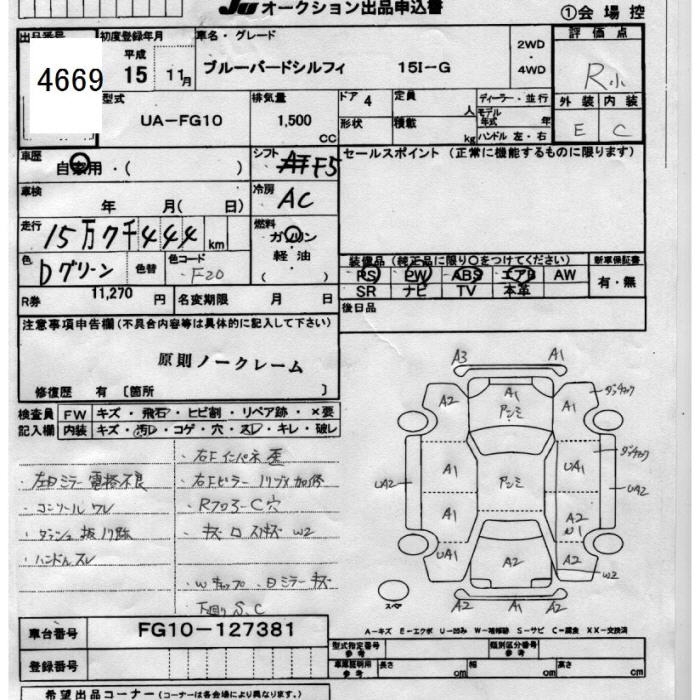 JU オークション出品申込書
①会場控
出品番号
4669
初度登録年月
平成
15 11月
車名・グレード
ブルーバードシルフィ 15I-G
2WD
・
4WD
評価点
R小
外装 内装
E C
型式
UA-FG10
排気量
1,500
CC
ドア 4
形状
定員
人
積載
kg
ディーラー・並行
モデル年式 年
ハンドル 左・右
車歴
自家用・( )
シフト
AT F5
セールスポイント (正常に機能するものに限ります)
車検
年 月( 日)
冷房
AC
走行
15万7千444 km
燃料
ガソリン
・
軽油
( )
色
Dグリーン
色替
色コード
F20
装備品 (純正品に限り○をつけてください)
新車保証書
PS PW ABS エアB AW
SR ナビ TV 本革
有・無
R券
11,270 円
名変期限 月 日
後日品
注意事項申告欄 (不具合内容等は具体的に記入して下さい)
原則ノークレーム
修復歴 有 〔箇所 〕
検査員 FW キズ・飛石・ヒビ割・リペア跡・×要
記入欄 内装 キズ・汚レ・コゲ・穴・スレ・キレ・破レ
・右Fインパネ歪
・左目ミラー電格不良
・右Fピラー
・コンソールワレ
・Rフロアー C 穴
・ハンドルスレ
W2
・Wキャップ・目ミラーキズ
下回りS、C
A3 A1
A2 A1 A1
アンミ
A1 UA1
UA2 アンミ UA2
A1 A2
UA1 A2 A2
W2
A2 A1 A2
スペア
A-キズ E-エクボ U-凹み W-補修跡 S-サビ C-腐食 XX-交換済
車台番号
FG10-127381
登録番号
型式指定番号
参考
類別区分番号
参考
車庫証明用
参考
長さ cm
幅 cm
高さ cm
希望出品コーナー (コーナーは各会場により異なります)